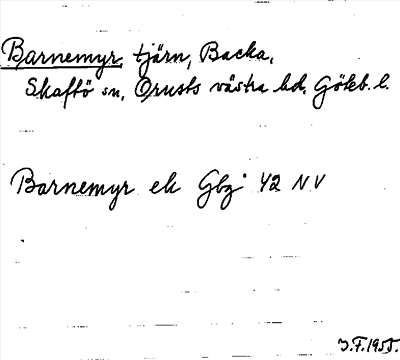 Barnemyr, tjärn, Backa,
Skaftö sn, Orusts västra hd, Göteb. l.
Barnemyr ek Gbg 42 NV
J.F. 1955.